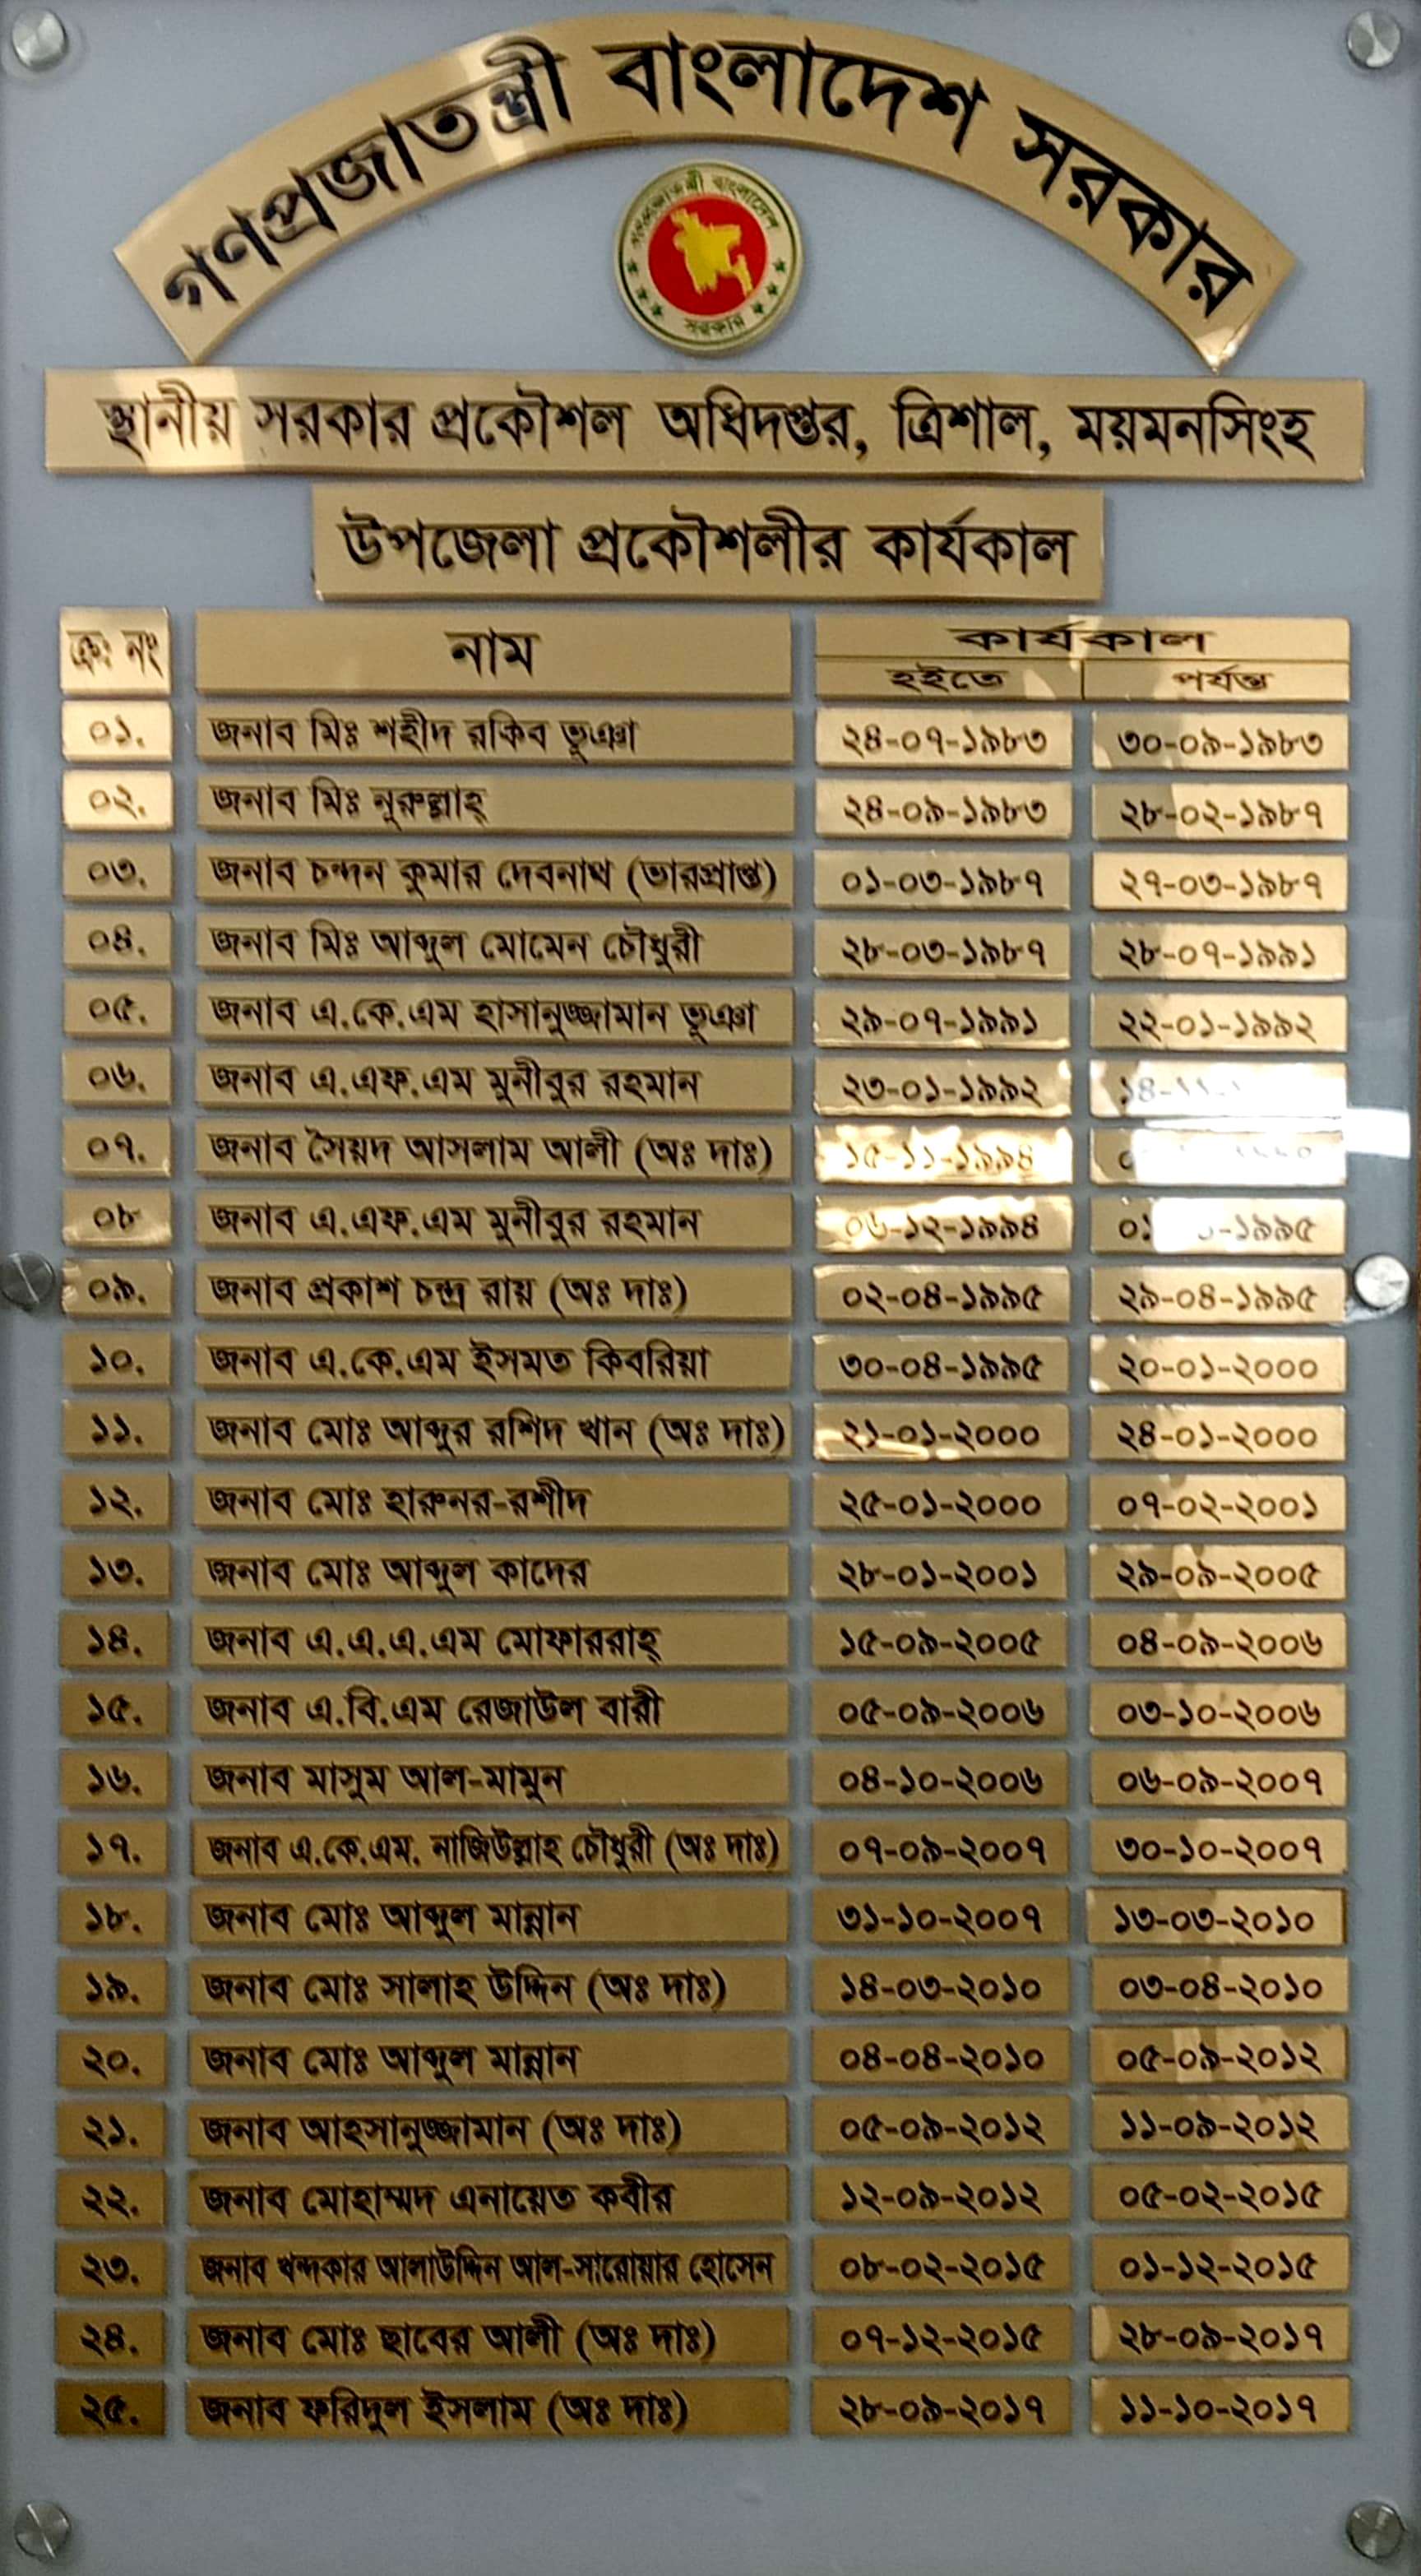 গণপ্রজাতন্ত্রী বাংলাদেশ সরকার
গণপ্রজাতন্ত্রী বাংলাদেশ
সরকার
স্থানীয় সরকার প্রকৌশল অধিদপ্তর, ত্রিশাল, ময়মনসিংহ
উপজেলা প্রকৌশলীর কার্যকাল
ক্রঃ নং নাম কার্যকাল
হইতে পর্যন্ত
০১. জনাব মিঃ শহীদ রকিব ভূঞা ২৪-০৭-১৯৮৩ ৩০-০৯-১৯৮৩
০২. জনাব মিঃ নূরুল্লাহ্ ২৪-০৯-১৯৮৩ ২৮-০২-১৯৮৭
০৩. জনাব চন্দন কুমার দেবনাথ (ভারপ্রাপ্ত) ০১-০৩-১৯৮৭ ২৭-০৩-১৯৮৭
০৪. জনাব মিঃ আব্দুল মোমেন চৌধুরী ২৮-০৩-১৯৮৭ ২৮-০৭-১৯৯১
০৫. জনাব এ.কে.এম হাসানুজ্জামান ভূঞা ২৯-০৭-১৯৯১ ২২-০১-১৯৯২
০৬. জনাব এ.এফ.এম মুনীবুর রহমান ২৩-০১-১৯৯২
০৭. জনাব সৈয়দ আসলাম আলী (অঃ দাঃ) ১৫-১১-১৯৯৪
০৮ জনাব এ.এফ.এম মুনীবুর রহমান ০৬-১২-১৯৯৪
০৯. জনাব প্রকাশ চন্দ্র রায় (অঃ দাঃ) ০২-০৪-১৯৯৫ ২৯-০৪-১৯৯৫
১০. জনাব এ.কে.এম ইসমত কিবরিয়া ৩০-০৪-১৯৯৫ ২০-০১-২০০০
১১. জনাব মোঃ আব্দুর রশিদ খান (অঃ দাঃ) ২১-০১-২০০০ ২৪-০১-২০০০
১২. জনাব মোঃ হারুনর-রশীদ ২৫-০১-২০০০ ০৭-০২-২০০১
১৩. জনাব মোঃ আব্দুল কাদের ২৮-০১-২০০১ ২৯-০৯-২০০৫
১৪. জনাব এ.এ.এ.এম মোফাররাহ্ ১৫-০৯-২০০৫ ০৪-০৯-২০০৬
১৫. জনাব এ.বি.এম রেজাউল বারী ০৫-০৯-২০০৬ ০৩-১০-২০০৬
১৬. জনাব মাসুম আল-মামুন ০৪-১০-২০০৬ ০৬-০৯-২০০৭
১৭. জনাব এ.কে.এম. নাজিউল্লাহ চৌধুরী (অঃ দাঃ) ০৭-০৯-২০০৭ ৩০-১০-২০০৭
১৮. জনাব মোঃ আব্দুল মান্নান ৩১-১০-২০০৭ ১৩-০৩-২০১০
১৯. জনাব মোঃ সালাহ উদ্দিন (অঃ দাঃ) ১৪-০৩-২০১০ ০৩-০৪-২০১০
২০. জনাব মোঃ আব্দুল মান্নান ০৪-০৪-২০১০ ০৫-০৯-২০১২
২১. জনাব আহসানুজ্জামান (অঃ দাঃ) ০৫-০৯-২০১২ ১১-০৯-২০১২
২২. জনাব মোহাম্মদ এনায়েত কবীর ১২-০৯-২০১২ ০৫-০২-২০১৫
২৩. জনাব খন্দকার আলাউদ্দিন আল-সারোয়ার হোসেন ০৮-০২-২০১৫ ০১-১২-২০১৫
২৪. জনাব মোঃ ছাবের আলী (অঃ দাঃ) ০৭-১২-২০১৫ ২৮-০৯-২০১৭
২৫. জনাব ফরিদুল ইসলাম (অঃ দাঃ) ২৮-০৯-২০১৭ ১১-১০-২০১৭